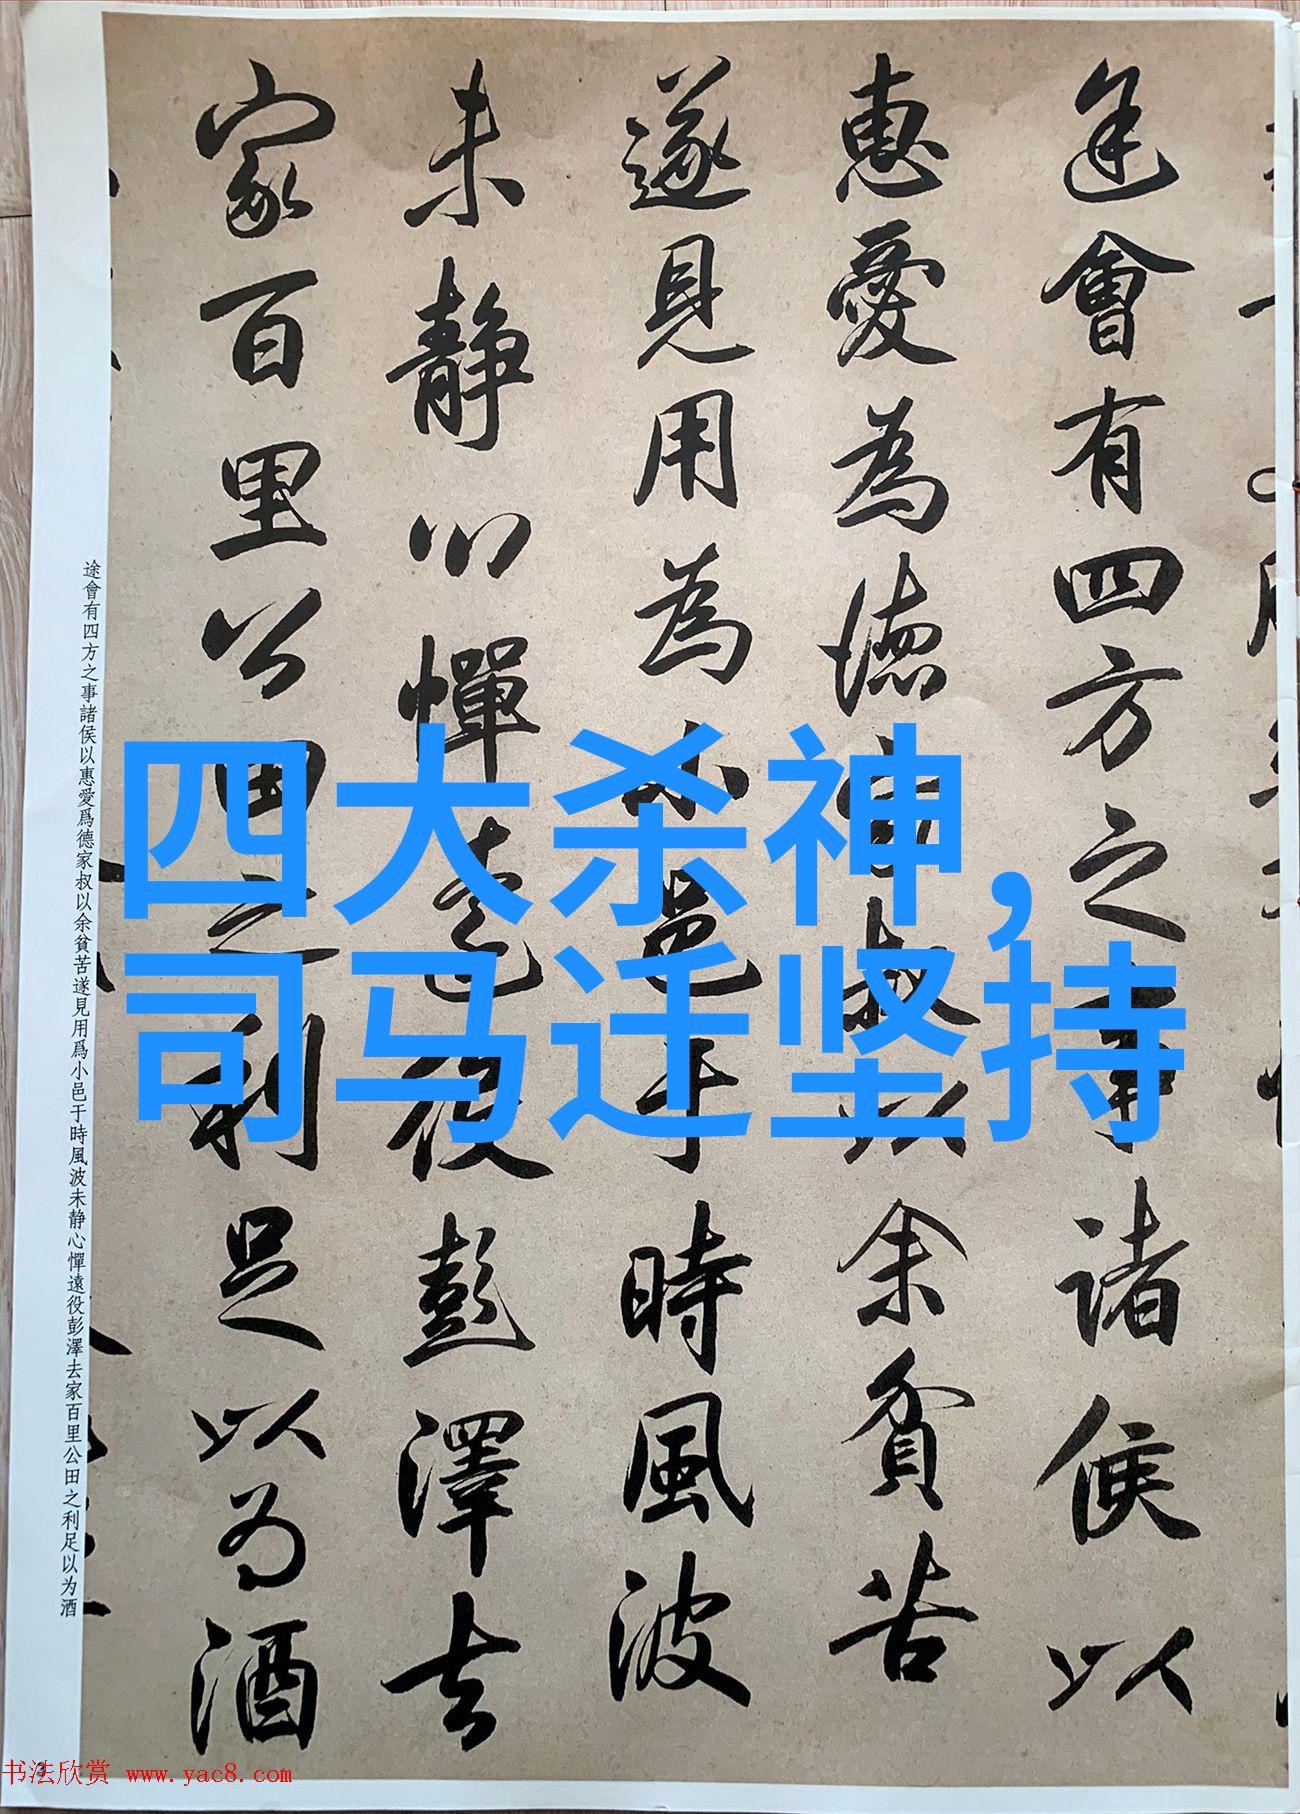 途會有四方之事諸侯以
惠愛為德家叔以余貧苦
遂見用為小邑于時風波
未靜心憚遠役彭澤去
家百里公田之利足以為酒
途會有四方之事諸侯以惠愛爲德家叔以余貧苦遂見用爲小邑于時風波未静心憚遠役彭澤去家百里公田之利足以为酒
四大杀神，
司马迁坚持
书法欣赏 www.yac8.com